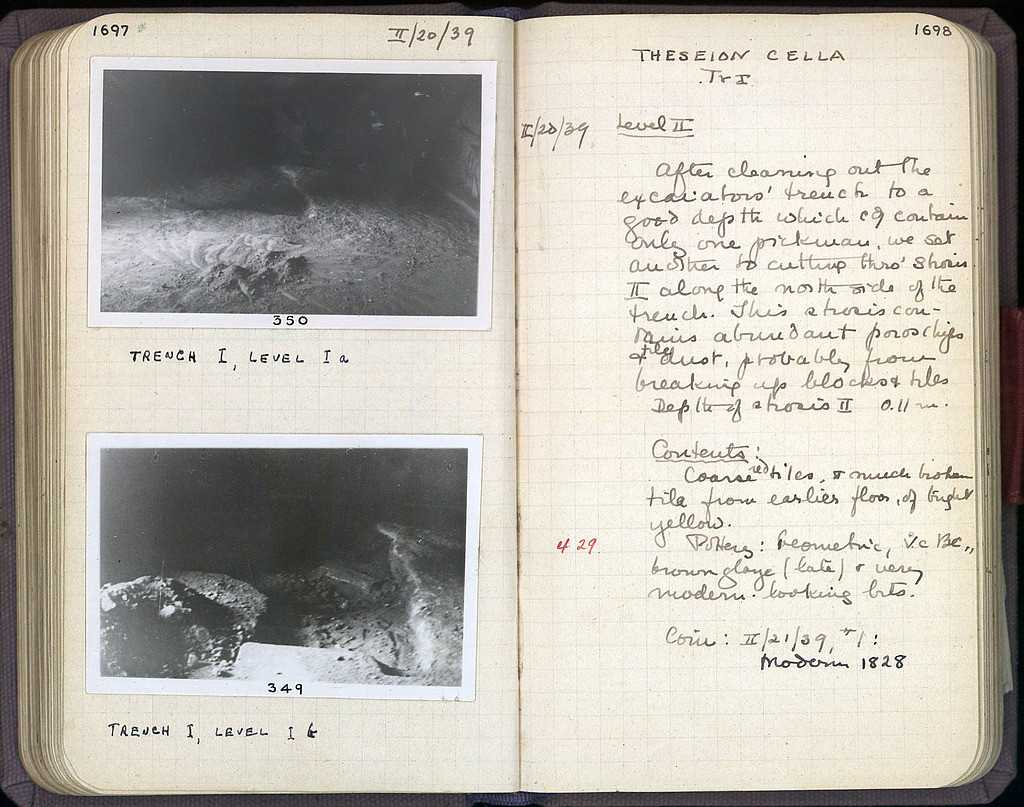 1697
II/20/39
350
TRENCH I, LEVEL I a
349
TRENCH I, LEVEL I b
1698
THESEION CELLA
Tr I
II/20/39 Level II
After cleaning out the
excavators' trench to a
good depth which cd contain
only one pickman, we set
another to cutting thro' strosis
II along the north side of the
trench. This strosis con-
tains abundant poros chips
& tile dust, probably from
breaking up blocks & tiles
Depth of strosis II 0.11 m.
Contents:
Coarse red tiles, & much broken
tile from earlier floor, of bright
yellow.
429. Pottery: Geometric, V c BC.,
brown glaze (late) & very
modern-looking bits.
Coin: II/21/39, #1:
Modern 1828